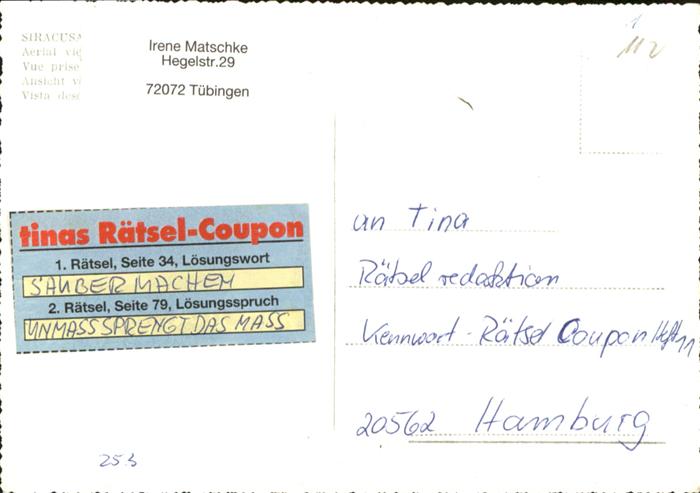 SIRACUSA
Aerial
Vue prise
Ansicht
Vista
Irene Matschke
Hegelstr.29
72072 Tübingen
112
tinas Rätsel-Coupon
1. Rätsel, Seite 34, Lösungswort
SAUBER MACHEN
2. Rätsel, Seite 79, Lösungsspruch
UNMASS SPRENGT DAS MASS
25.3
an Tina
Rätsel redaktion
Kennwort - Rätsel Coupon Heft 11
20562 Hamburg